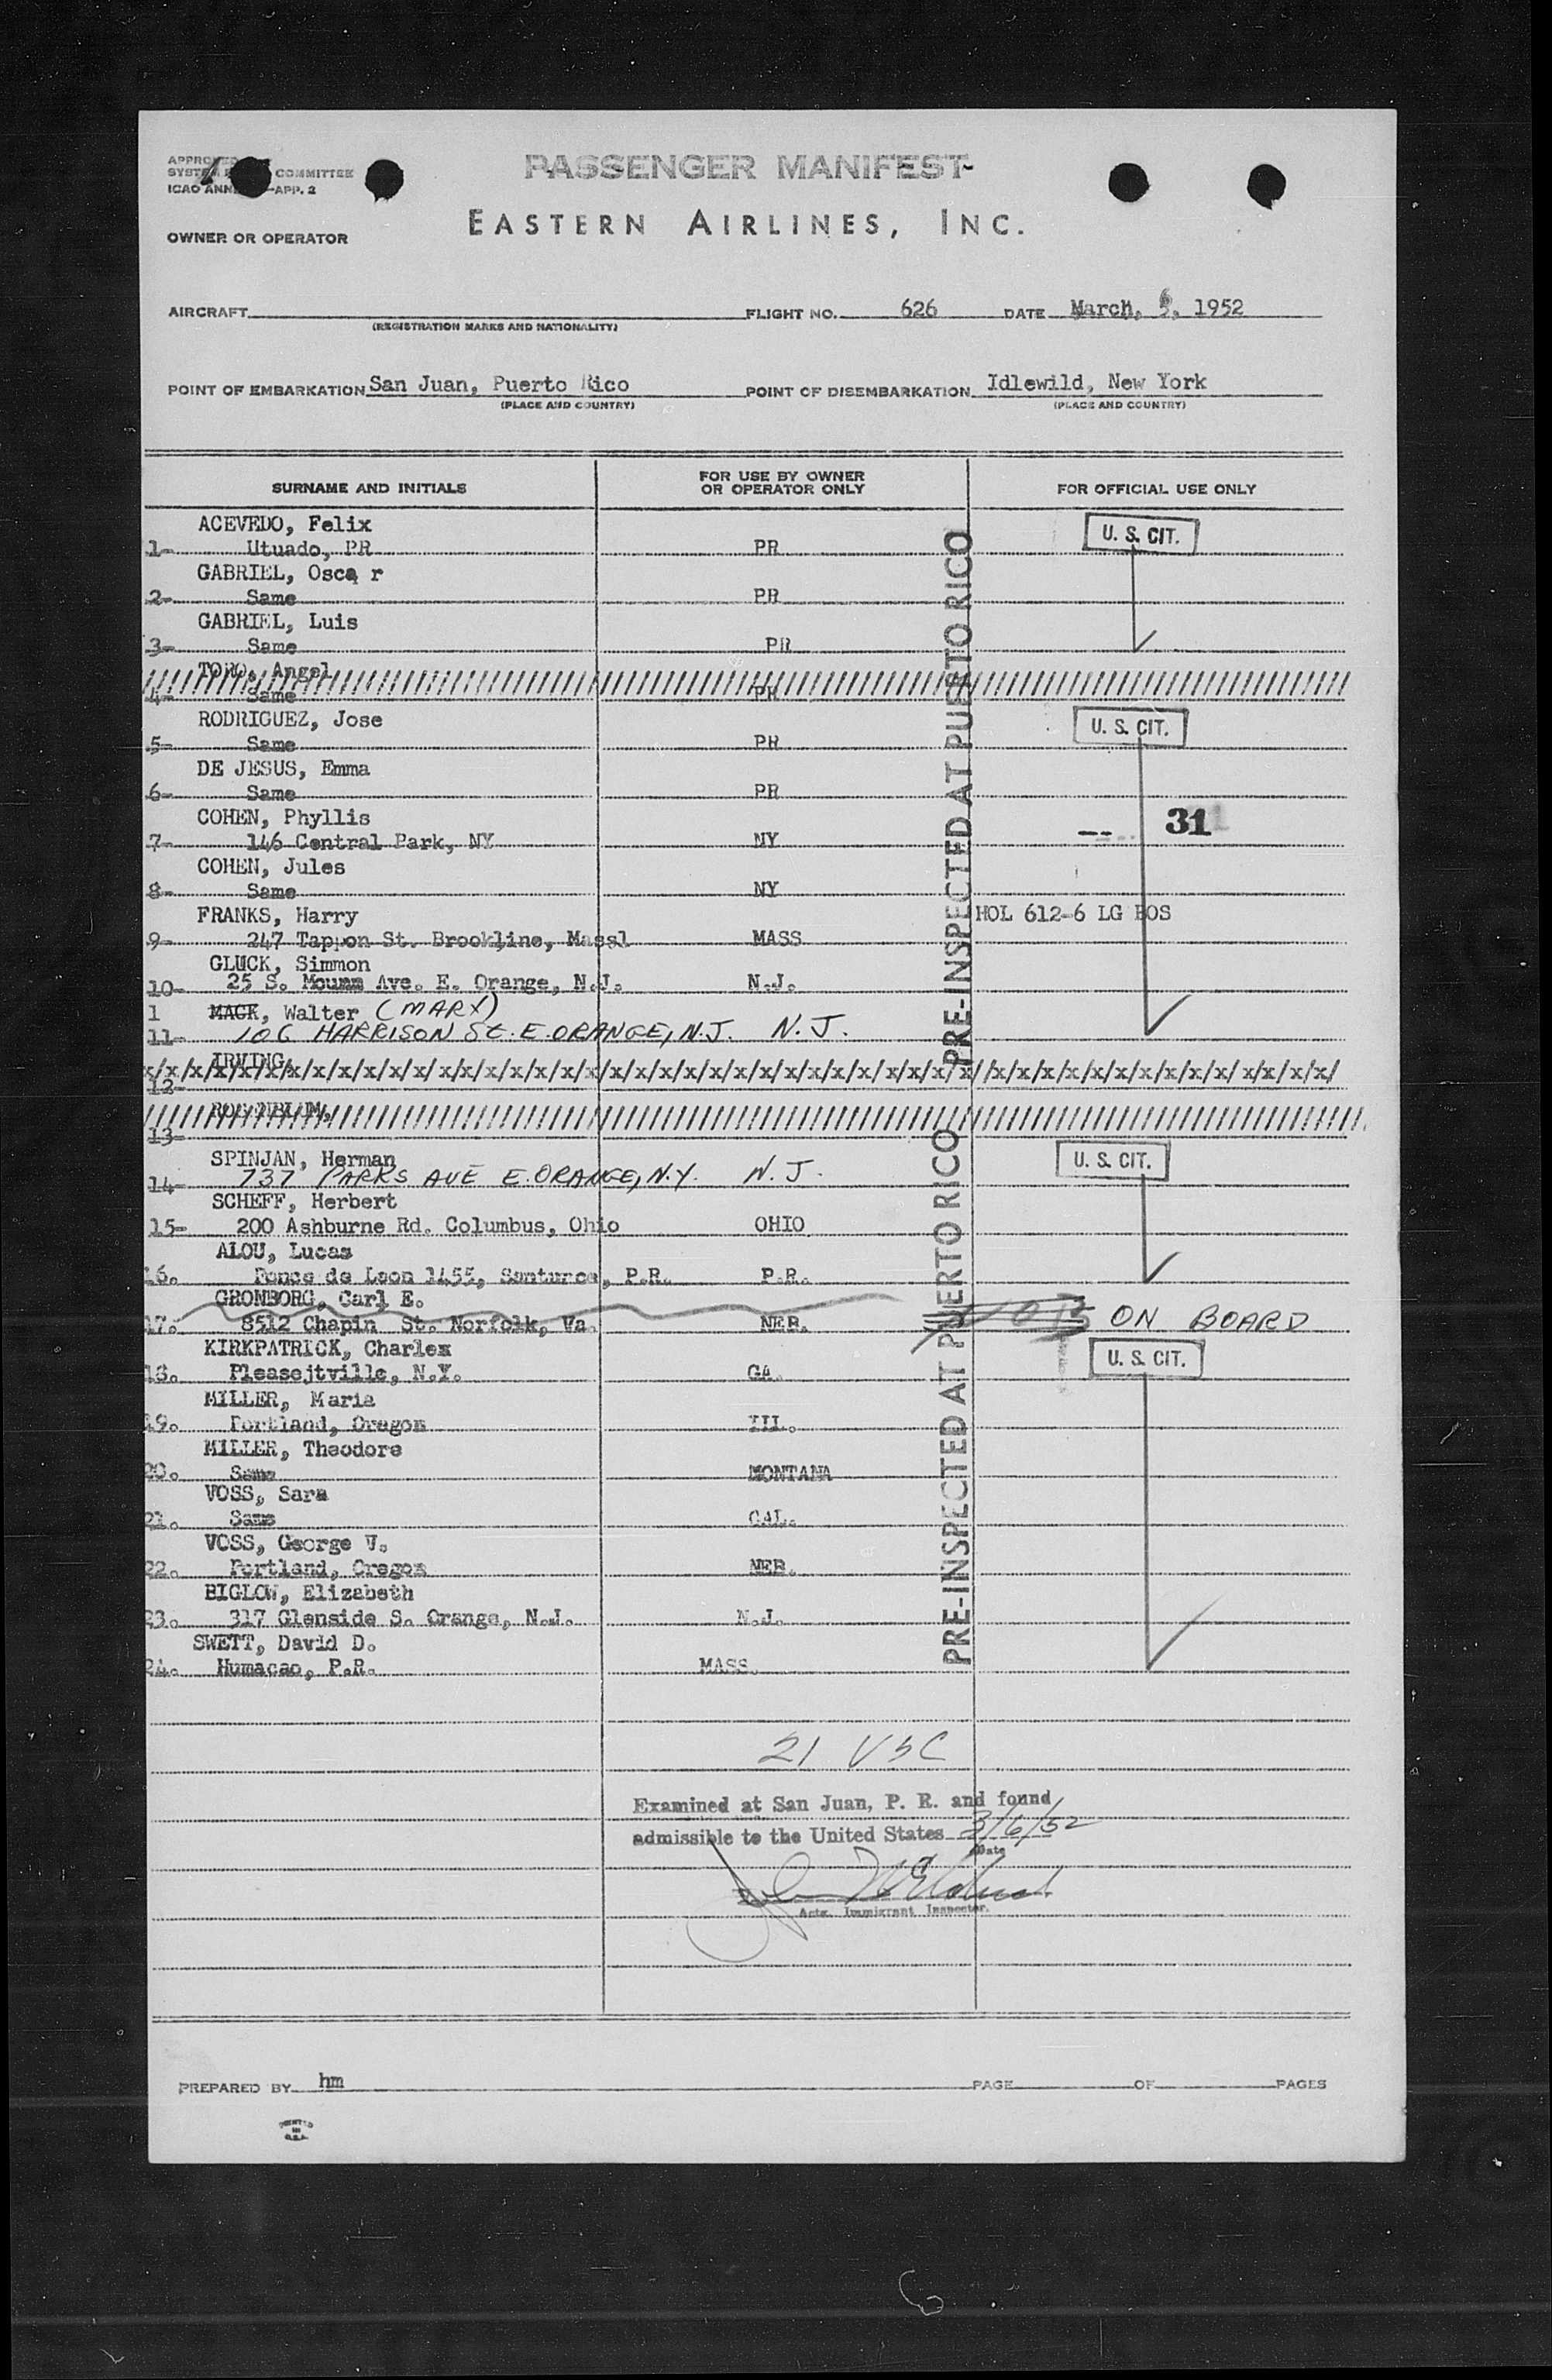 PASSENGER MANIFEST
APPROVED COMMITTEE
SYSTEM
ICAO ANNE -APP. 2
EASTERN AIRLINES, INC.
OWNER OR OPERATOR
AIRCRAFT FLIGHT NO. 626 DATE March, 6, 1952
(REGISTRATION MARKS AND NATIONALITY)
POINT OF EMBARKATION San Juan, Puerto Rico POINT OF DISEMBARKATION Idlewild, New York
(PLACE AND COUNTRY) (PLACE AND COUNTRY)
SURNAME AND INITIALS FOR USE BY OWNER OR OPERATOR ONLY FOR OFFICIAL USE ONLY
ACEVEDO, Felix U. S. CIT.
1- Utuado, PR PR
GABRIEL, Osca r
2- Same PR
GABRIEL, Luis
3- Same PR
TORO, Angel
4- Same PR
RODRIGUEZ, Jose U. S. CIT.
5- Same PR
DE JESUS, Emma
6- Same PR
COHEN, Phyllis 31
7- 146 Central Park, NY NY
COHEN, Jules
8- Same NY
FRANKS, Harry HOL 612-6 LG BOS
9- 247 Tappon St. Brookline, Massl MASS
GLUCK, Simmon
10- 25 S. Ave. E. Orange, N.J. N.J.
1 MACK, Walter (MARX)
11- 106 HARRISON St. E. ORANGE, N.J. N.J.
IRVING,
12-
ROSENBLUM,
13-
SPINJAN, Herman U. S. CIT.
14- 737 PARKS AVE E. ORANGE, N.Y. N.J.
SCHEFF, Herbert
15- 200 Ashburne Rd. Columbus, Ohio OHIO
ALOU, Lucas
16. Ponce de Leon 1455, Santurce, P.R. P.R.
GRONBORG, Carl E.
17. 8512 Chapin St. Norfolk, Va. NEB. NOT ON BOARD
KIRKPATRICK, Charles U. S. CIT.
18. Pleasejtville, N.Y. GA.
MILLER, Marie
19. Portland, Oregon ILL.
MILLER, Theodore
20. Same MONTANA
VOSS, Sara
21. Same CAL.
VOSS, George V.
22. Portland, Oregon NEB.
BIGLOW, Elizabeth
23. 317 Glenside S. Orange, N.J. N.J.
SWETT, David D.
24. Humacao, P.R. MASS.
PRE-INSPECTED AT PUERTO RICO
PRE-INSPECTED AT PUERTO RICO
21 USC
Examined at San Juan, P. R. and found
admissible to the United States 3/6/52
Date
Actg. Immigrant Inspector.
PREPARED BY hm PAGE OF PAGES
PRINTED
IN
U.S.A.